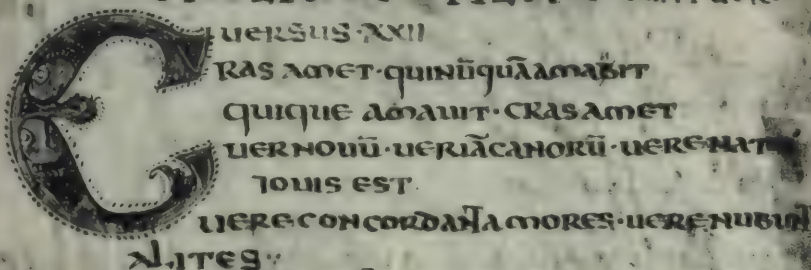 UERSUS·XXII
CRAS AMET·QUINŪQUĀAMABIT
QUIQUE AMAUIT·CRAS AMET
UER NOUŪ·UERIĀCANORŪ·UERE NAT
IOUIS EST
UERE CONCORDANT AMORES·UERE NUBUNT
ALITES